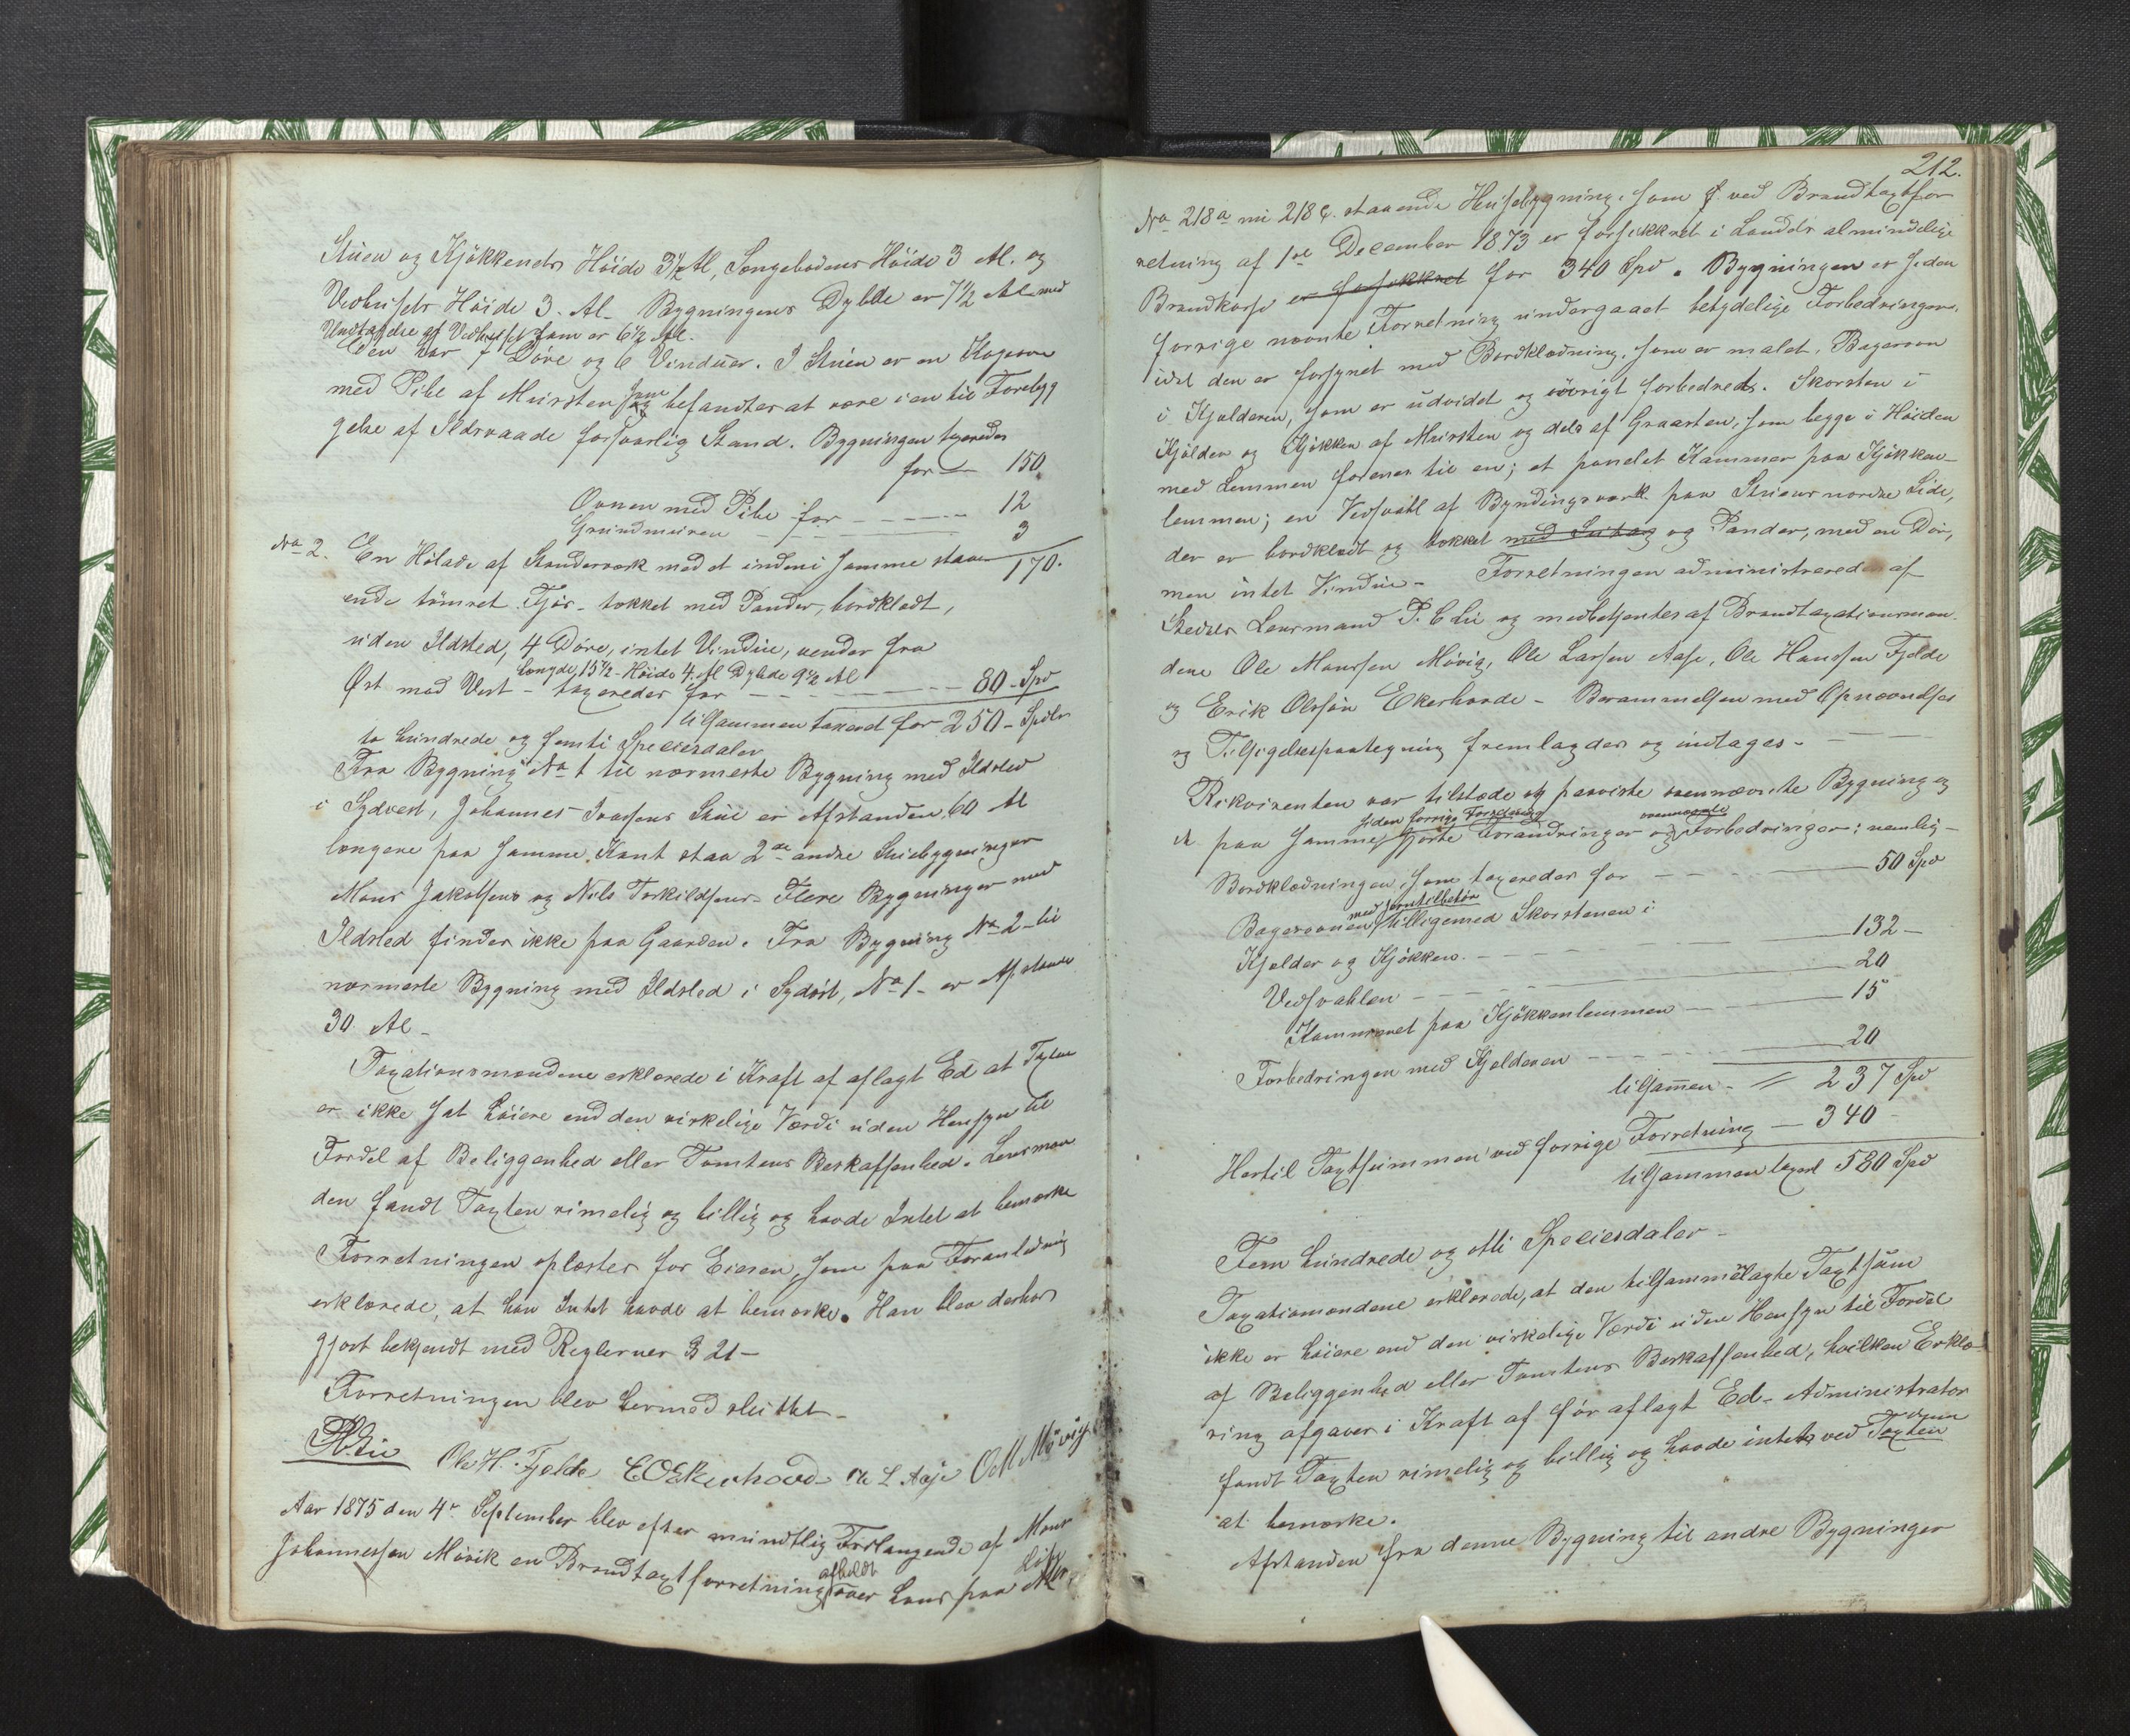 Stuen og Kjøkkenets Høide 3½ Al, Sengebodens Høide 3 Al. og
Vedhusets Høide 3. Al_ Bygningens Dybde er 7½ Al_ med
Undtagelse af Vedhuset som er 6½ Al.
Den har 7 Døre og 6 Vinduer. I Stuen er en Kogeovn
med Pibe af Mursten som befandtes at være i en til Forebyg
gelse af Ildsvaade forsvarlig Stand. Bygningen taxeredes
for — 150
Ovnen med Pibe for — — — 12
Grundmuren — — — 3
No 2. En Hølade af Stenderværk med et indeni samme staa- 170.
ende tømret Fjøs _ tækket med Pander, bordklædt,
uden Ildsted, 4 Døre, intet Vindue, vender fra
Længde, 15½ - Høide 4. Al Dybde 9½ Al
Øst mod Vest – taxeredes for — — — 80 - Spd
tilsammen taxeret for 250 – Spdlr
to hundrede og femti Speciesdaler
Fra Bygning No 1 til nærmeste Bygning med Ildsted
i Sydvest, Johannes Ivarsens Stue er Afstanden 60 Al
længere paa samme Kant staa 2de andre Stuebygninger
Mons Jakobsens og Nils Torkildsens. Flere Bygninger med
Ildsted findes ikke paa Gaarden. Fra Bygning No 2 til
nærmeste Bygning med Ildsted i Sydøst, No 1 – er Afstanden
30 Al –
Taxationsmændene erklærede i Kraft af aflagt Ed at Taxten
er ikke sat høiere end den virkelige Værdi uden Hensyn til
Fordel af Beliggenhed eller Tomtens Beskaffenhed. Lensman
den fandt Taxten rimelig og billig og havde Intet at bemærke
Forretningen oplæstes for Eieren, som paa Foranledning
erklærede, at han Intet havde at bemærke. Han blev derhos
gjort bekjendt med Reglernes § 21 –
Forretningen blev hermed sluttet –
P. Lie Ole H. Fjelde E O Ekerhovd Ole L Aase O M Møvig
Aar 1875 den 4de September blev efter mundtlig Forlangende af Mons
Johannessen Møvik en Brandtaxtforretning afholdt over hans paa
212.
No 218a nu 218c. staaende Husebygning, som ved Brandtaxtfor
retning af 1ste December 1873 er forsikkret i Landets almindelige
Brandkasse er forsikkret for 340 Spd. Bygningen er siden
forrige nævnte Forretning undergaaet betydelige Forbedringer,
idet den er forsynet med Bordklædning, som er malet, Bagerovn
i Kjælderen, som er udvidet og øvrigt forbedret. Skorsten i
Kjælder og Kjøkken af Mursten og dels af Graasten, som begge i Høiden
med Lemmen forenes til en; et panelet Kammer paa Kjøkken-
lemmen; en Vedsvahl af Byndingsværk paa Stuens nordre Side,
der er bordklædt og tækket med og Pander, med en Dør,
men intet Vindue – Forretningen administreredes af
Stedets Lensmand P. C Lie og medbetjentes af Brandtaxationsmæn
dene Ole Monssen Møvig, Ole Larsen Aase, Ole Hanssen Fjelde
og Erik Olssøn Ekerhovde – Berammelsen med Opnævnelse
og Tilsigelsespaategning fremlagdes og indtages. — —
Rekvirenten var tilstæde og paaviste ovennævnte Bygning og
siden forrige Forretning ovennævnte
de paa samme gjorte Forandringer og Forbedringer; nemlig –
Bordklædningen, som taxeredes for — — — 50 Spd
med Jerntilbehør
Bagerovnen tilligemed Skorstenen i
Kjælder og Kjøkken — — — 132 –
Vedsvahlen — — — 20
Kammeret paa Kjøkkenlemmen — — 15
Forbedringen med Kjælderen — — — 20
tilsammen – = 237 Spd
Hertil Taxtsummen ved forrige Forretning — 340 –
tilsammen taxeret 580 Spd
Fem hundrede og otti Speciesdaler –
Taxationsmændene erklærede, at den tilsammenlagte Taxtsum
ikke er høiere end den virkelige Værdi uden Hensyn til Fordel
af Beliggenhed eller Tomtens Beskaffenhed, hvilken Erklæ-
ring afgaves i Kraft af før aflagt Ed. Administrator
fandt Taxten rimelig og billig og havde intet ved Taxten
at bemærke.
Afstanden fra denne Bygning til andre Bygninger